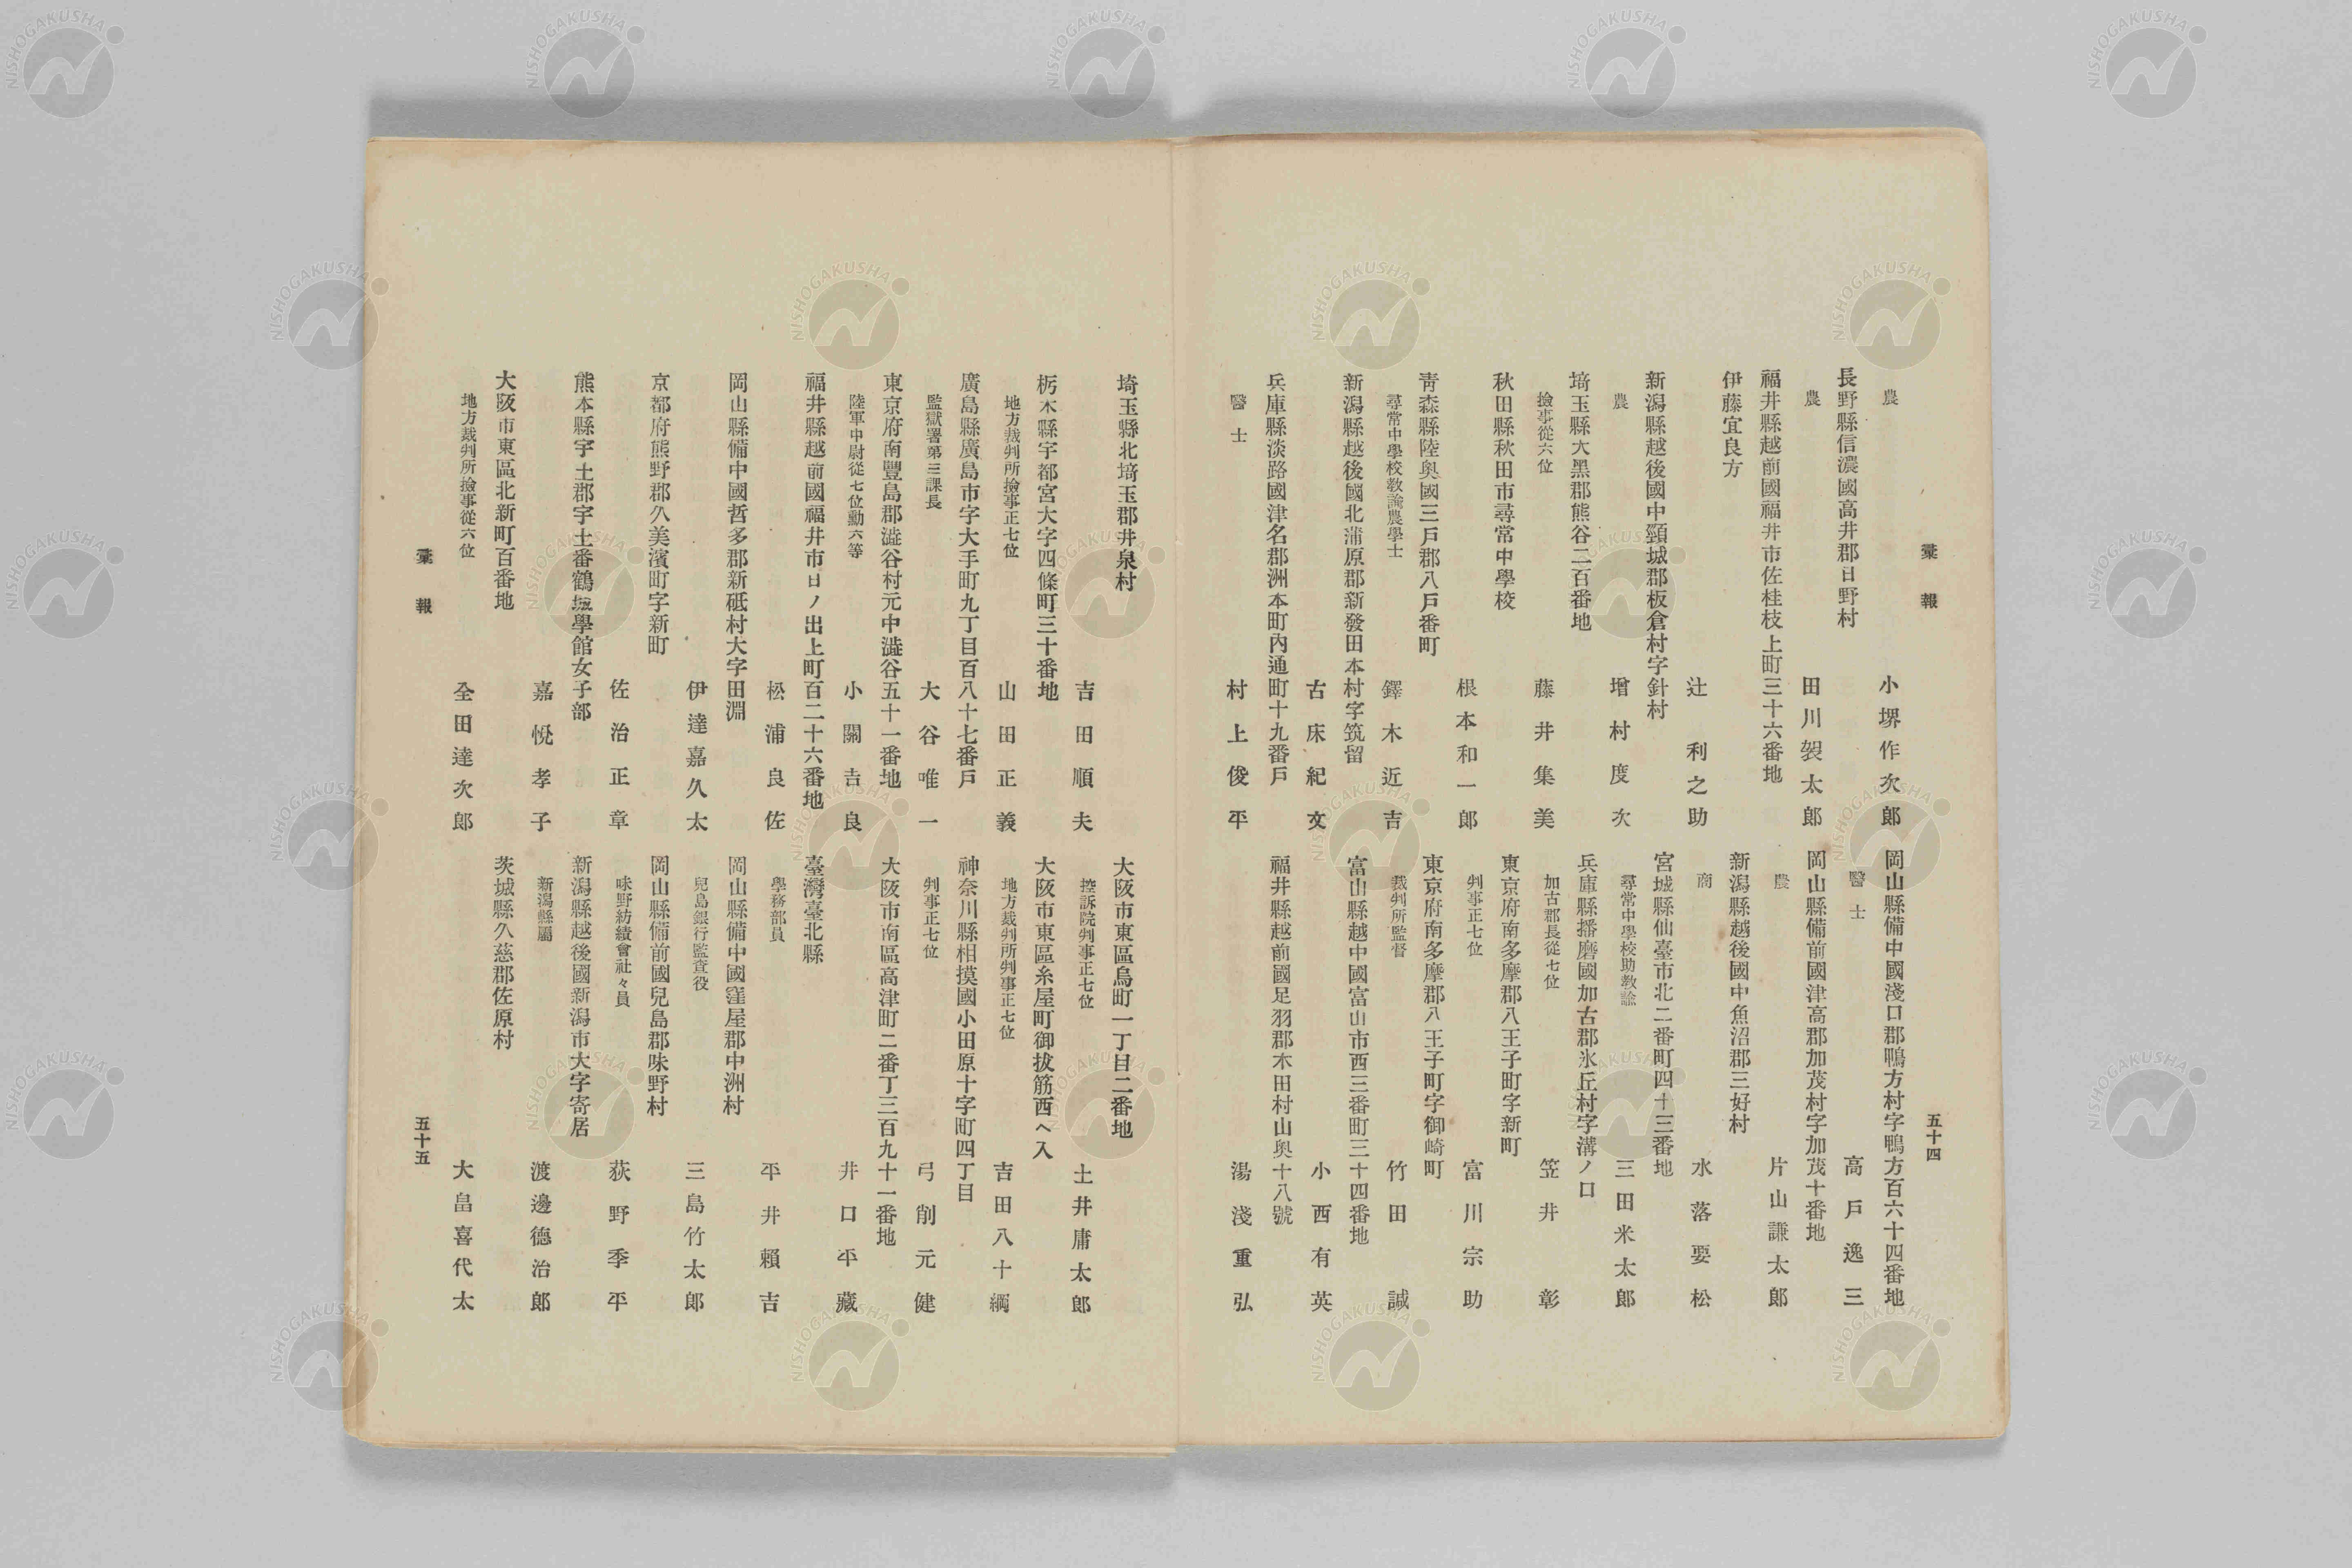 彙報
五十四
農
小堺作次郎
長野縣信濃國高井郡日野村
農
田川袈太郎
福井縣越前國福井市佐桂枝上町三十六番地
伊藤宜良方
辻利之助
新潟縣越後國中頸城郡板倉村字針村
農
增村度次
埼玉縣大黑郡熊谷二百番地
撿事從六位
藤井集美
秋田縣秋田市尋常中學校
根本和一郎
靑森縣陸奥國三戸郡八戸番町
尋常中學校敎諭農學士
鐸木近吉
新潟縣越後國北蒲原郡新發田本村字筑留
古床紀文
兵庫縣淡路國津名郡洲本町內通町十九番戸
醫士
村上俊平
岡山縣備中國淺口郡鴨方村字鴨方百六十四番地
醫士
高戸逸三
岡山縣備前國津高郡加茂村字加茂十番地
農
片山謙太郎
新潟縣越後國中魚沼郡三好村
商
水落要松
宮城縣仙臺市北二番町四十三番地
尋常中學校助敎諭
三田米太郎
兵庫縣播磨國加古郡氷丘村字溝ノ口
加古郡長從七位
笠井彰
東京府南多摩郡八王子町字新町
判事正七位
富川宗助
東京府南多摩郡八王子町字御崎町
裁判所監督
竹田誠
富山縣越中國富山市西三番町三十四番地
小西有英
福井縣越前國足羽郡木田村山奥十八號
湯淺重弘
埼玉縣北埼玉郡井泉村
吉田順夫
栃木縣宇都宮大字四條町三十番地
地方裁判所撿事正七位
山田正義
廣島縣廣島市字大手町九丁目百八十七番戸
監獄署第三課長
大谷唯一
東京府南豐島郡澁谷村元中澁谷五十一番地
陸軍中尉從七位勳六等
小關吉良
福井縣越前國福井市日ノ出上町百二十六番地
松浦良佐
岡山縣備中國哲多郡新砥村大字田淵
伊達嘉久太
京都府熊野郡久美濱町字新町
佐治正章
熊本縣宇土郡宇土番鶴城學館女子部
嘉悅孝子
大阪市東區北新町百番地
地方裁判所撿事從六位
全田達次郎
大阪市東區鳥町一丁目二番地
控訴院判事正七位
土井庸太郎
大阪市東區糸屋町御拔筋西ヘ入
地方裁判所判事正七位
吉田八十綱
神奈川縣相摸國小田原十字町四丁目
判事正七位
弓削元健
大阪市南區高津町二番丁三百九十一番地
井口平藏
臺灣臺北縣
學務部員
平井賴吉
岡山縣備中國窪屋郡中洲村
兒島銀行監査役
三島竹太郎
岡山縣備前國兒島郡味野村
味野紡績會社々員
荻野季平
新潟縣越後國新潟市大字寄居
新潟縣屬
渡邊德治郎
茨城縣久慈郡佐原村
大畠喜代太
彙報
五十五